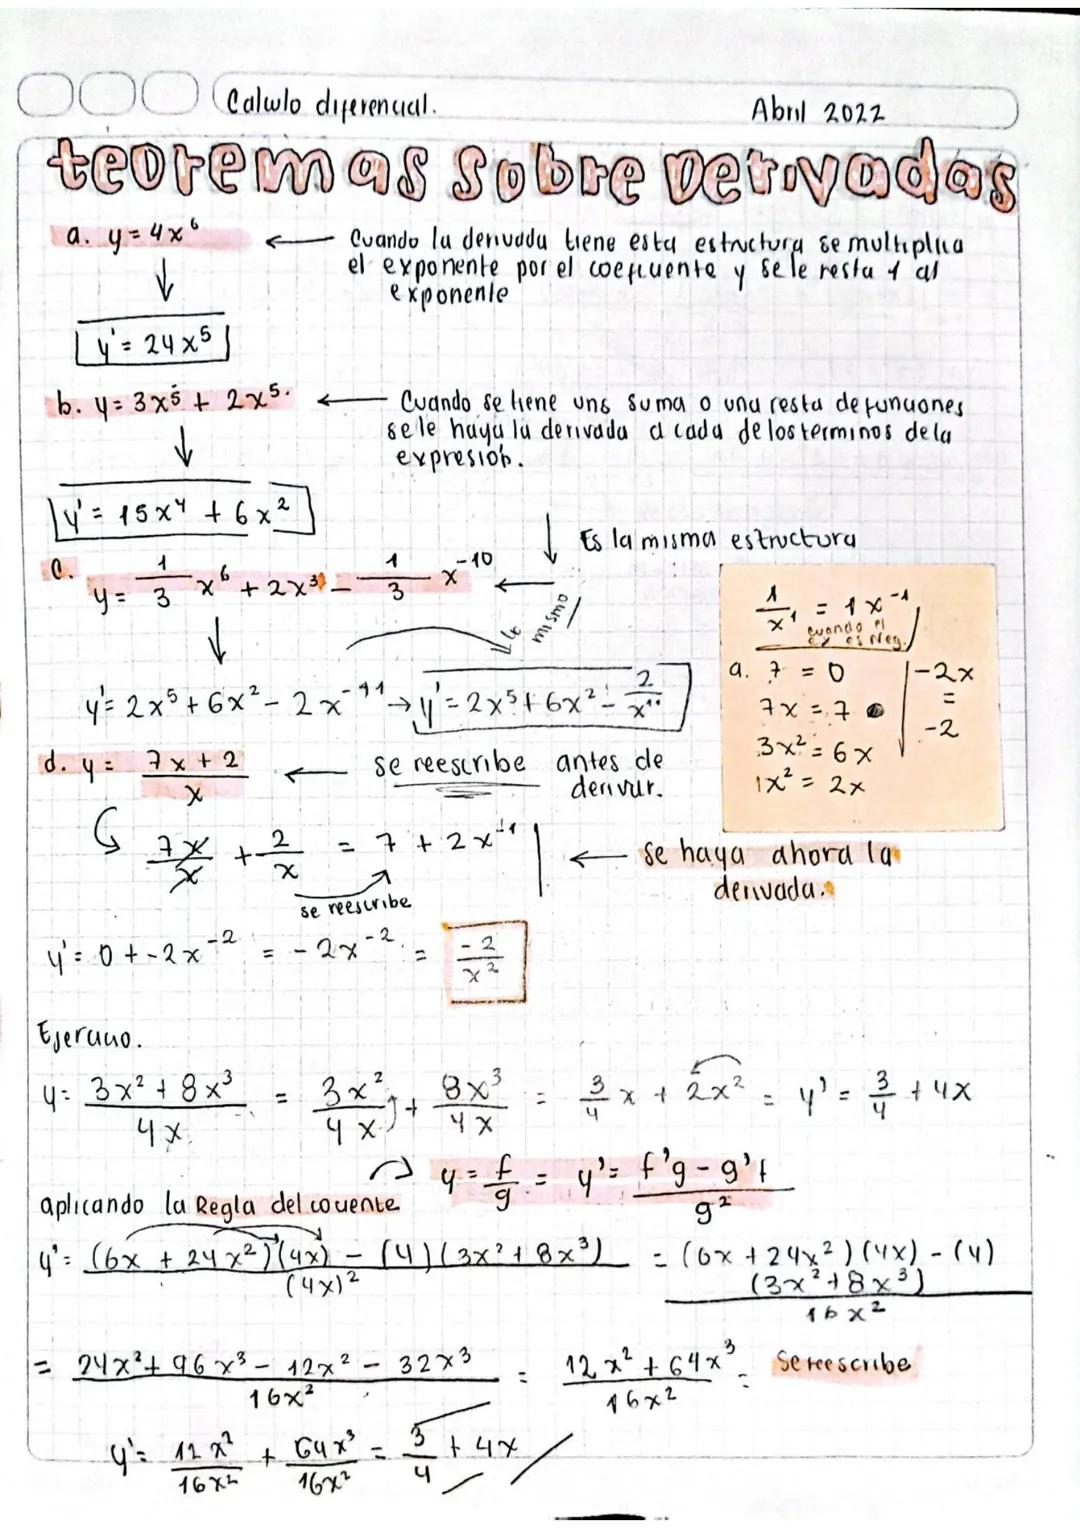 Calculo diferencial.
Abril 2022
teoremas sobre Derivadas
a. y = 4x⁶
Cuando la derivada tiene esta estructura se multiplica
el exponente por el coeficiente y se le resta 1 al
exponente
y' = 24x⁵
b. y = 3x⁵ + 2x⁵
Cuando se tiene una suma o una resta de funciones
se le haya la derivada a cada de los terminos de la
expresion.
y' = 15x⁴ + 6x²
Es la misma estructura
c. y = 1/3 x⁶ + 2x³ - 1/3 x⁻¹⁰
lo mismo
y' = 2x⁵ + 6x² - 2x⁻¹¹ → y' = 2x⁵ + 6x² - 2/x¹¹
1/x¹ = 1x⁻¹
cuando el
es Neg.
a. 7 = 0
7x = 7
3x² = 6x
1x² = 2x
-2x
=
-2
d. y = (7x + 2)/x
se reescribe antes de
derivar.
7x/x + 2/x = 7 + 2x⁻¹
se reescribe
se haya ahora la
derivada.
y' = 0 + -2x⁻² = -2x⁻² = -2/x²
Ejercicio.
y = (3x² + 8x³)/4x = 3x²/4x + 8x³/4x = 3/4 x + 2x² = y' = 3/4 + 4x
y = f/g = y' = (f'g - g'f)/g²
aplicando la Regla del cociente
y' = ((6x + 24x²)(4x) - (4)(3x² + 8x³))/(4x)² = ((6x + 24x²)(4x) - (4)(3x² + 8x³))/16x²
= (24x² + 96x³ - 12x² - 32x³)/16x² = (12x² + 64x³)/16x² = Se reescribe
y' = 12x²/16x² + 64x³/16x² = 3/4 + 4x